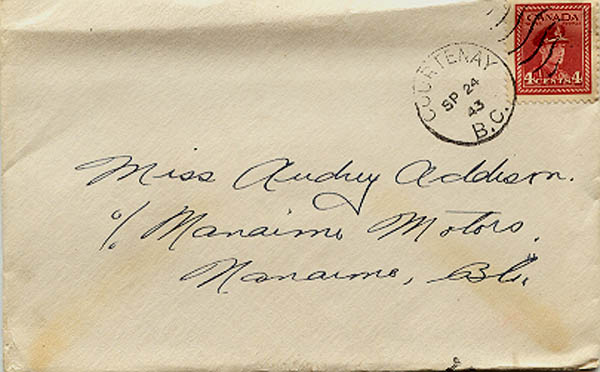 CANADA
4 CENTS 4
COURTENAY
SP 24
43
B.C.
Miss Audrey Addison.
c/o Nanaimo Motors,
Nanaimo, B.C.